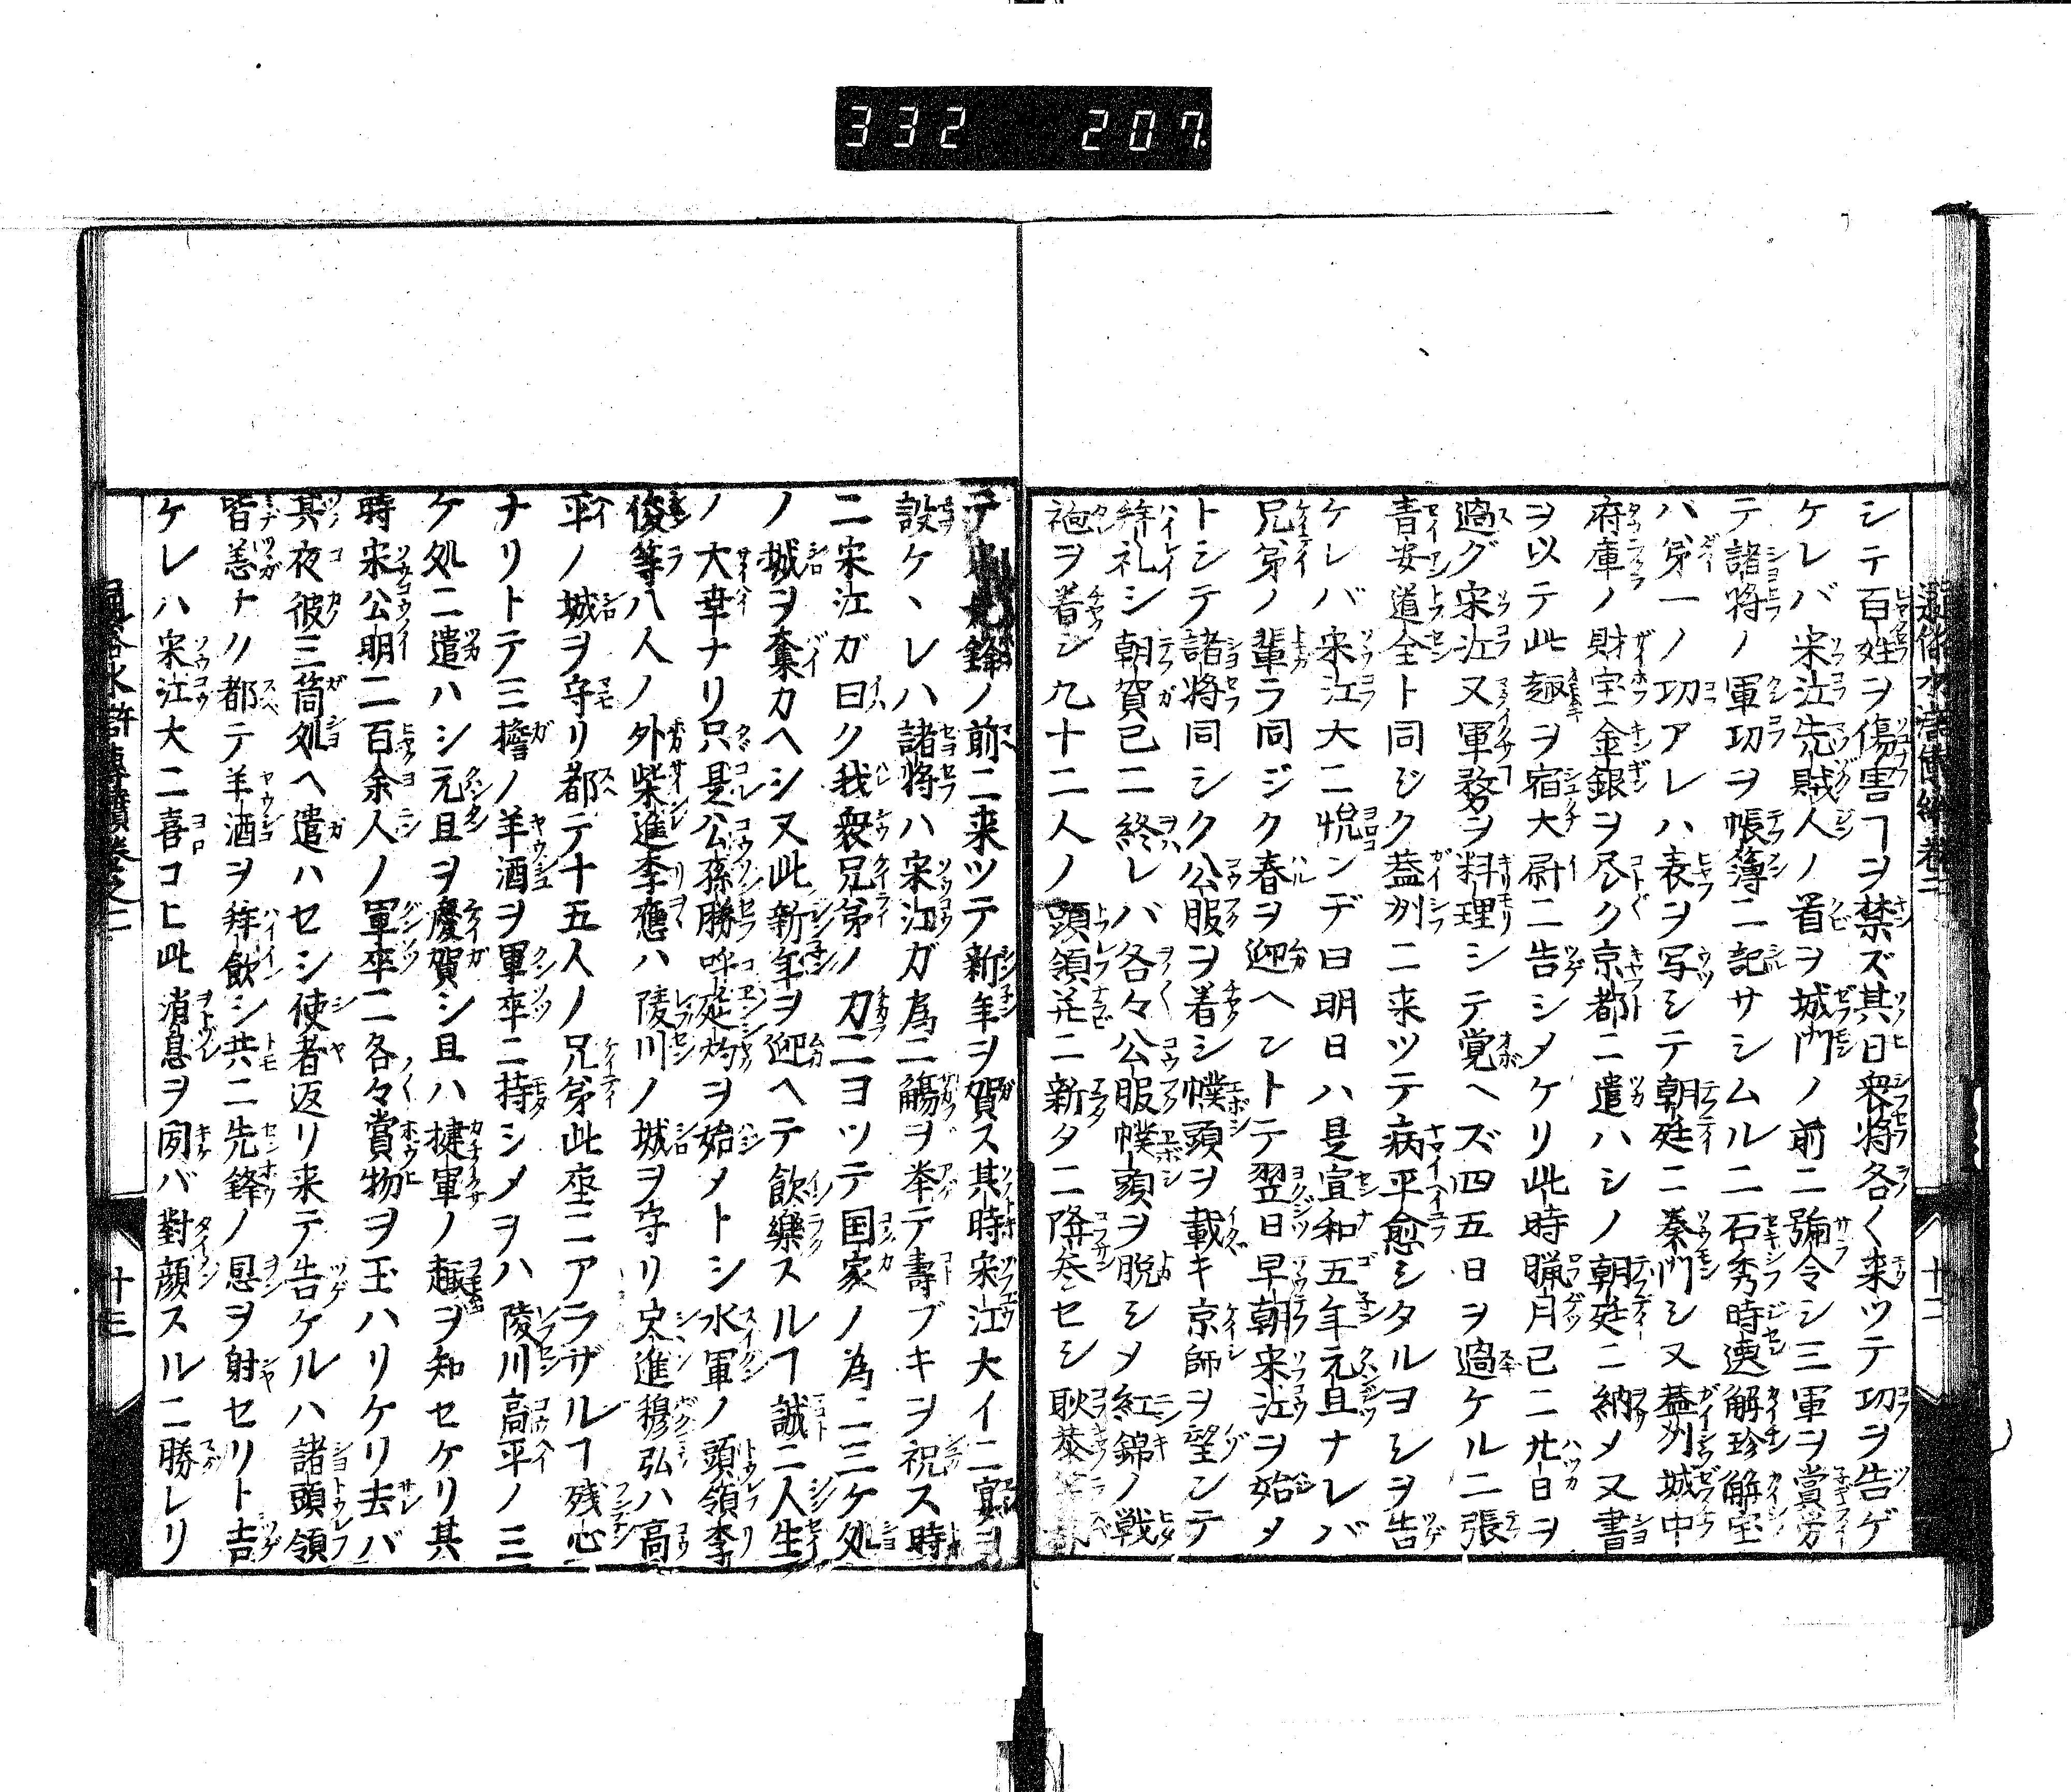 332 207.
シテ百姓ヲ傷害ヿヲ禁ズ其日衆将各〱来ツテ功ヲ告ゲ
ケレバ宋江先賊人ノ首ヲ城門ノ前ニ號令シ三軍ヲ賞労
テ諸将ノ軍功ヲ帳簿ニ記サシムルニ石秀時遷解珍解宝
バ第一ノ功アレハ表ヲ写シテ朝廷ニ奏門シ又蓋州城中
府庫ノ財宝金銀ヲ尽ク京都ニ遣ハシノ朝廷ニ納メ又書
ヲ以テ此趣ヲ宿大尉ニ告シメケリ此時臘月已ニ廿日ヲ
過グ宋江又軍務ヲ料理シテ覚ヘズ四五日ヲ過ケルニ張
青安道全ト同ジク蓋州ニ来ツテ病平愈シタルヨシヲ告
ケレバ宋江大ニ悦ンデ曰明日ハ是宣和五年元旦ナレバ
兄弟ノ輩ラ同ジク春ヲ迎ヘントテ翌日早朝宋江ヲ始メ
トシテ諸将同シク公服ヲ着シ幞頭ヲ載キ京師ヲ望ンテ
拜礼シ朝賀已ニ終レバ各々公服幞頭ヲ脱シメ紅錦ノ戦
袍ヲ着シ九十二人ノ頭領並ニ新タニ降叅セシ耿恭
十二
ノ前ニ来ツテ新年ヲ賀ス其時宋江大イニ宴ヲ
設ケヽレハ諸将ハ宋江ガ為ニ觴ヲ挙テ壽ブキヲ祝ス時
ニ宋江ガ曰ク我衆兄弟ノ力ニヨツテ国家ノ為ニ三ケ処
ノ城ヲ奪カヘシ又此新年ヲ迎ヘテ飲樂スルヿ誠ニ人生
ノ大幸ナリ只是公孫勝呼延灼ヲ始メトシ水軍ノ頭領李
俊等八人ノ外柴進李應ハ陵川ノ城ヲ守リ史進穆弘ハ高
平ノ城ヲ守リ都テ十五人ノ兄弟此座ニアラザルヿ残心
ナリトテ三擔ノ羊酒ヲ軍卒ニ持シメヲハ陵川高平ノ三
ケ処ニ遣ハシ元旦ヲ慶賀シ且ハ揵軍ノ趣ヲ知セケリ其
時宋公明二百余人ノ軍卒ニ各々賞物ヲ玉ハリケリ去バ
其夜彼三箇処ヘ遣ハセシ使者返リ来テ告ケルハ諸頭領
皆恙トノ都テ羊酒ヲ拜飲シ共ニ先鋒ノ恩ヲ射セリト吉
ケレハ宋江大ニ喜コヒ此消息ヲ関バ對顔スルニ勝レリ
水滸傳
十三